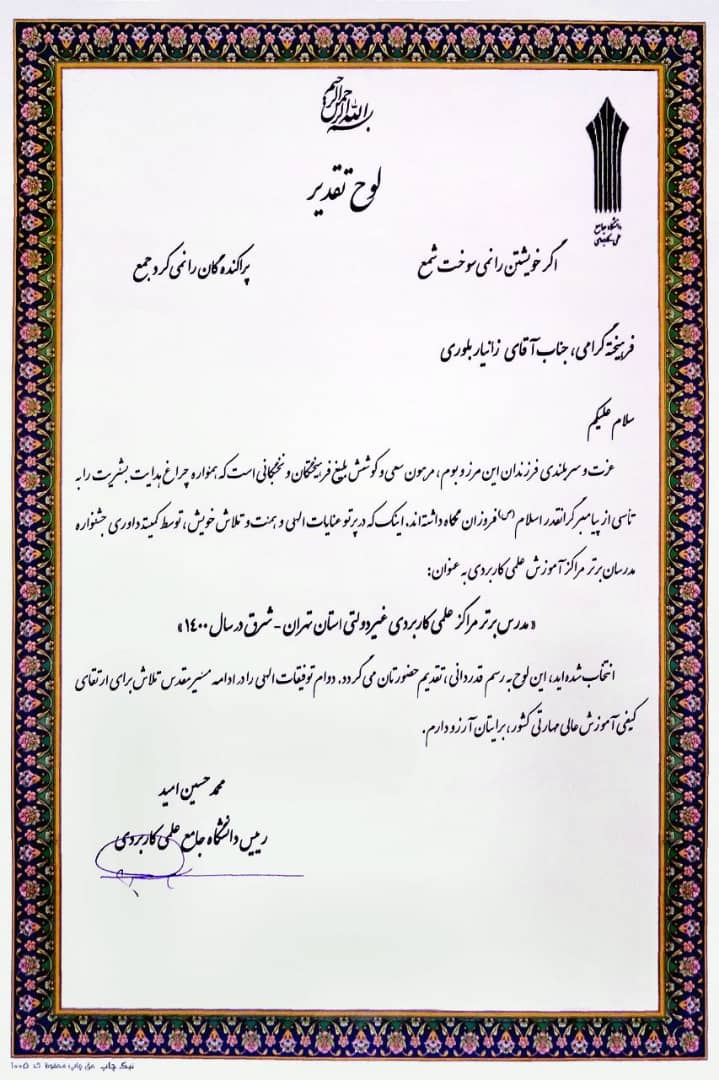 بسم الله الرحمن الرحیم
دانشگاه جامع
علمی کاربردی
لوح تقدیر
اگر خویشتن را نمی سوخت شمع پراکنده گان را نمی کرد جمع
فرهیخته گرامی، جناب آقای زانیار بلوری
سلام علیکم
عزت و سربلندی فرزندان این مرز و بوم، مرهون سعی و کوشش بلیغ فرهیختگان و نخبگانی است که همواره چراغ هدایت بشریت را به
تأسی از پیامبر گرانقدر اسلام (ص) فروزان نگاه داشته‌اند. اینک که در پرتو عنایات الهی و همت و تلاش خویش، توسط کمیته داوری جشنواره
مدرسان برتر مراکز آموزش علمی کاربردی به عنوان:
«مدرس برتر مراکز علمی کاربردی غیردولتی استان تهران - شرق در سال ۱۴۰۰»
انتخاب شده‌اید، این لوح به رسم قدردانی، تقدیم حضورتان می گردد. دوام توفیقات الهی را در ادامه مسیر مقدس تلاش برای ارتقای
کیفی آموزش عالی مهارتی کشور، برایتان آرزو دارم.
محمد حسین امید
رییس دانشگاه جامع علمی کاربردی
نیک چاپ حق چاپ محفوظ کد ۱۰۰۵